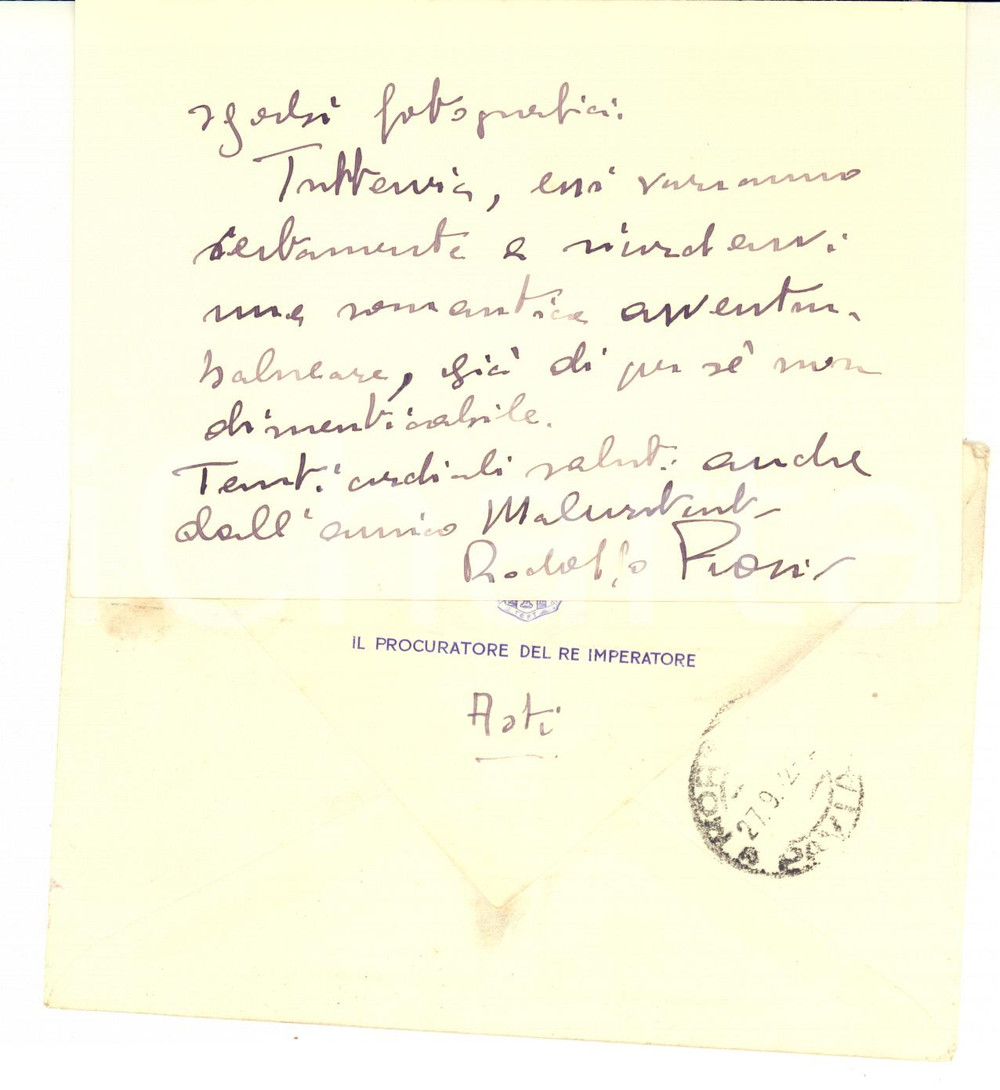 sgorbi fotografici.
Tuttavia, essi varranno
certamente a ricordarvi
una romantica avventura
balneare, già di per sè non
dimenticabile.
Tanti cordiali saluti anche
dall'amico
Rodolfo
IL PROCURATORE DEL RE IMPERATORE
Asti
27.9.42